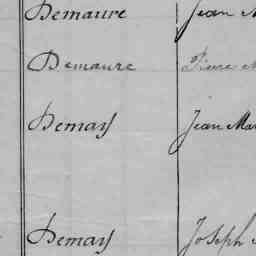 Demaure Jean M
Demaure Pierre M
Demay Jean Mar
Demay Joseph